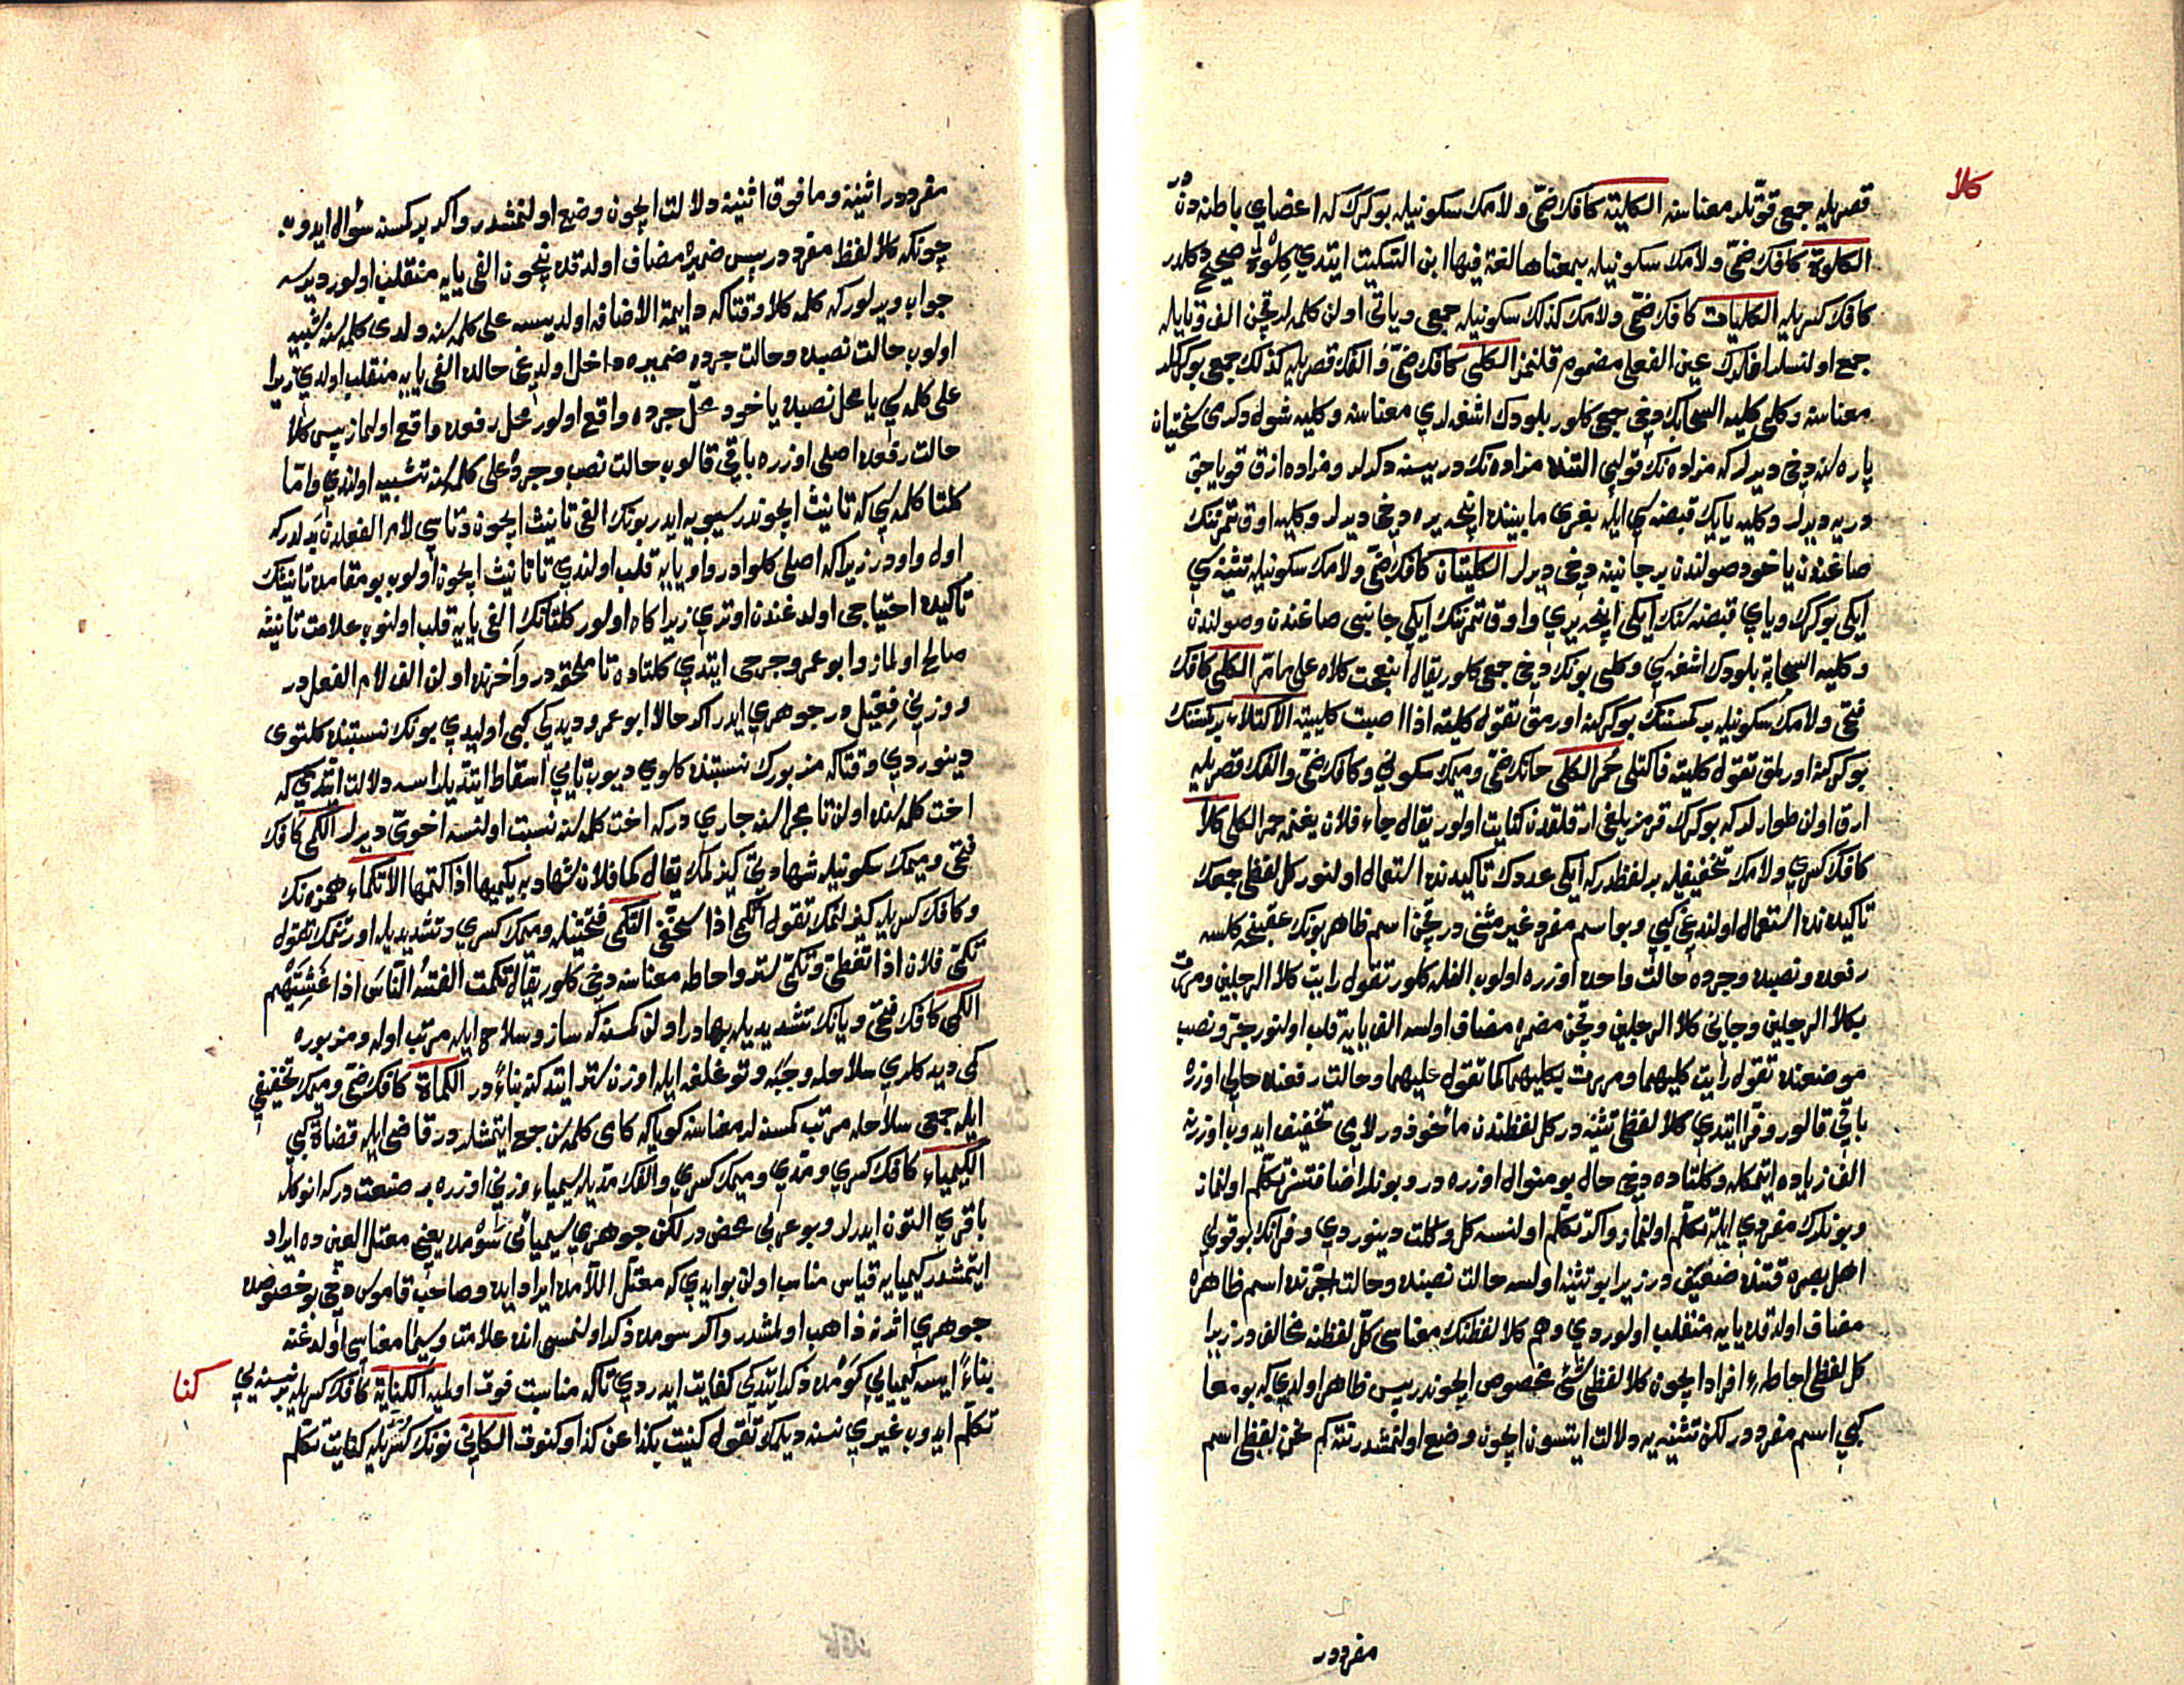 كلا
قصريله جمعى قوتلر معناسنه الكلية كافك ضمّى ولامك سكونيله بوكرك كه اعضاي باطنه دندر
الكلوة كافك ضمّى ولامك سكونيله بمعناها لغة فيها ابن السكيت ايتدي كلوة صحيح دكلدر
كافك كسريله الكليات كافك ضمّى ولامك كذلك سكونيله جمعى ويائى اولن كلمه لر قچن الف وتايله
جمع اولنسلر انلرك عين الفعلى مضموم قلنمز الكلى كافك ضمّى والفك قصريله كذلك جمعى بوكركلر
معناسنه وكلى كلية السحابك دخى جمعى كلور بلودك اشغه لري معناسنه وكليه شوله دكرى سختيان
پاره لره دخى ديرلر كه مزاده نك قولپى التنده مزاده نك دريسنه دكرلر ومزاده ازق قوياجق
دريه ديرلر وكليه يايك قبضه سي ايله بغرى مابيننده اينجه يره دخى ديرلر وكليه اوق تمرنك
صاغندن ياخود صولندن بر جانبنه دخى ديرلر الكليتان كافك ضمّى ولامك سكونيله تثنيه سي
ايكى بوكرك وياي قبضه سنك ايكى اينجه يري واوق تمرنك ايكى جانبى صاغندن وصولندن
وكلية السحابة بلودك اشغه سي وكلى بونك دخى جمعى كلور يقال انبعجت كلاه على مامر الكلى كافك
فتحى ولامك سكونيله بر كمسنك بوكركنه اورمق تقول كليته اذا اصبت كليته الاكتلاء بر كمسنك
بوكركنه اورلمق تقول كليته فاكتلى حمر الكلى حانك ضمّى وميمك سكوني وكافك ضمّى والفك قصريله
ارق اولن طوارلر كه بوكرك قرمزيلغى ارقلقدن كنايت اولور يقال جاء فلان بغنمه حمر الكلى كلا
كافك كسري ولامك تخفيفيله بر لفظدر كه ايكى عددك تاكيدنده استعمال اولنور كل لفظى جمعك
تاكيدنده استعمال اولندغى كبى وبو اسم مفرد غير مثنى در قچن اسم ظاهر بونك عقبنجه كلسه
رفعده ونصبده وجرده حالت واحده اوزره اولوب الفله كلور تقول رايت كلا الرجلين ومررت
بكلا الرجلين وجاءني كلا الرجلين وقچن مضمره مضاف اولسه الف يايه قلب اولنور جر ونصب
موضعنده تقول رايت كليهما ومررت بكليهما كما تقول عليهما وحالت رفعنده حالى اوزره
باقى قالور وفرّا ايتدي كلا لفظى تثنيه در كل لفظندن مأخوذدر لامى تخفيف ايدوب اوزرينه
الف زياده ايتمكله وكلتاده دخى حال بو منوال اوزره در وبونلر اضافتسز تكلم اولنماز
وبونلرك مفردي ايله تكلم اولنماز واكر تكلم اولنسه كل وكلت دينوردي وفرّانك بو قولي
اهل بصره قتنده ضعيف در زيرا بو تثنيه اولسه حالت نصبنده وحالت جرنده اسم ظاهره
مضاف اولدقده يايه منقلب اولوردي وهم كلا لفظنك معناسى كل لفظنه مخالف در زيرا
كل لفظى احاطه افراد ايچون كلا لفظى شئ مخصوص ايچوندر پس ظاهر اولدي كه بو معا
كبي اسم مفرددر لكن تثنيه يه دلالت ايتسون ايچون وضع اولنمشدر نته كم نحن لفظى اسم
مفرددر
مفرددر اثنينه ومافوق اثنينه دلالت ايچون وضع اولنمشدر واكر بر كمسنه سؤال ايدوب
چونكه كلا لفظ مفرددر پس ضميره مضاف اولدقده نيچون الفى يايه منقلب اولور ديرسه
جواب ويرلور كه كلمه كلا وقتاكه دايمة الاضافه اولديسه على كلمه سنه ولدى كلمه سنه شبيه
اولوب حالت نصبده وحالت جرده ضميره داخل اولديغى حالده الفى يايه منقلب اولدي زيرا
على كلمه سي يا محل نصبده ياخود محل جرده واقع اولور محل رفعده واقع اولماز پس كلا
حالت رفعده اصلى اوزره باقى قالوب حالت نصب وجرده على كلمه سنه تشبيه اولندي وامّا
كلتا كلمه سي كه تانيث ايچوندر سيبويه ايدر بونك الفى تانيث ايچون وتاسي لام الفعلدن بدلدر كه
اول واودر زيرا كه اصلى كلوادر واو يايه قلب اولندي تا تانيث ايچون اولوب بو مقامده تانيثك
تاكيده احتياجى اولدغندن اوتري زيرا كاه اولور كلتانك الفى يايه قلب اولنوب علامت تانيثه
صالح اولماز وابو عمر وجرمى ايتدي كلتاده تا ملحقه در واخرنده اولن الف لام الفعل در
ووزني فعتيل در جوهري ايدر اكر حالا ابو عمرو ديدكى كبى اوليدي بونك نسبتنده كلتوى
دينوردي وقتاكه مزبورك نسبتنده كلوي ديوب تايى اسقاط ايتديلر ايسه دلالت ايتدي كه
اخت كلمه سنده اولن تا مجراسنه جاري در كه اخت كلمه سنه نسبت اولنسه اخوى ديرلر الكمى كافك
فتحى وميمك سكونيله شهادتى كيزلمك يقال كما فلان شهادته يكميها اذا كتمها الانكماء همزه نك
وكافك كسريله كيزلنمك تقول انكمى اذا استخفى التكمى فتحتينله وميمك كسري وتشديديله اورتنمك تقول
تكمى فلان اذا تغطى وتكمى ستر واحاطه معناسنه دخى كلور يقال تكمت الفتنة الناس اذا غشيتهم
الكمى كافك فتحى ويانك تشديديله بهادر اولن كمسنه كه ساز وسلاح ايله مرتب اوله ومزبوره
كمى ديدكلري سلاحله وجبه وتوغلغه ايله اوزن ستر ايتدكنه بناءً در الكماة كافك ضمّى وميمك تخفيفي
ايله جمعى سلاحله مرتب كمسنه لر معناسنه كوياكه كامى كلمه سن جمع ايتمشلردر قاضى ايله قضاة كبي
الكيمياء كافك كسري ومدّي وميمك كسري والفك مديله سيمياء وزني اوزره بر صنعت در كه انوكله
باقري التون ايدرلر وبو عربى محض در لكن جوهري سيميائى سومده يعني معتل العين ده ايراد
ايتمشدر كيميايه قياس مناسب اولن بو ايدي كه معتل اللامده ايراد ايده وصاحب قاموس دخى بو خصوصده
جوهري اثرنه ذاهب اولمشدر واكر سومده ذكر اولنمسى انده علامت وسيما معناسى اولدغنه
بناءً ايسه كيميايي كومده ذكر ايتدكى كفايت ايدردي تاكه مناسبت فوت اولميه الكناية كافك كسريله بر نسنه يي
كنا
تكلم ايدوب غيري نسنه ديلمك تقول كنيت بكذا عن كذا وكنوت الكانى نونك كسريله كنايت تكلم